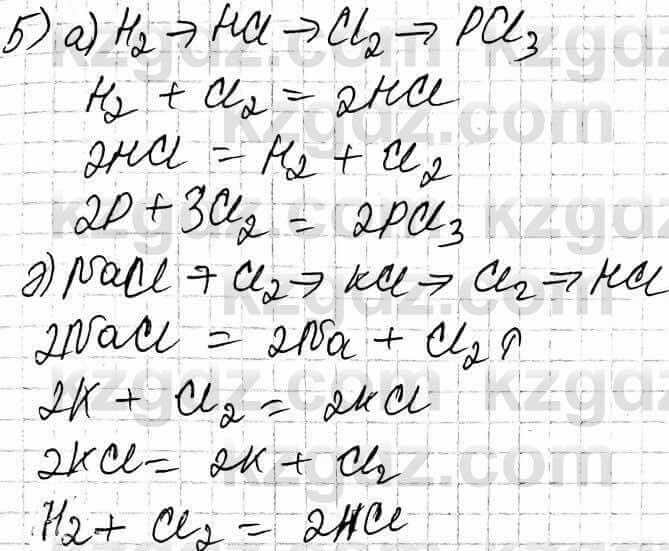 5) а) H₂ → HCl → Cl₂ → PCl₃
H₂ + Cl₂ = 2HCl
2HCl = H₂ + Cl₂
2P + 3Cl₂ = 2PCl₃
д) NaCl → Cl₂ → KCl → Cl₂ → HCl
2NaCl = 2Na + Cl₂↑
2K + Cl₂ = 2KCl
2KCl = 2K + Cl₂
H₂ + Cl₂ = 2HCl
kzgdz.com